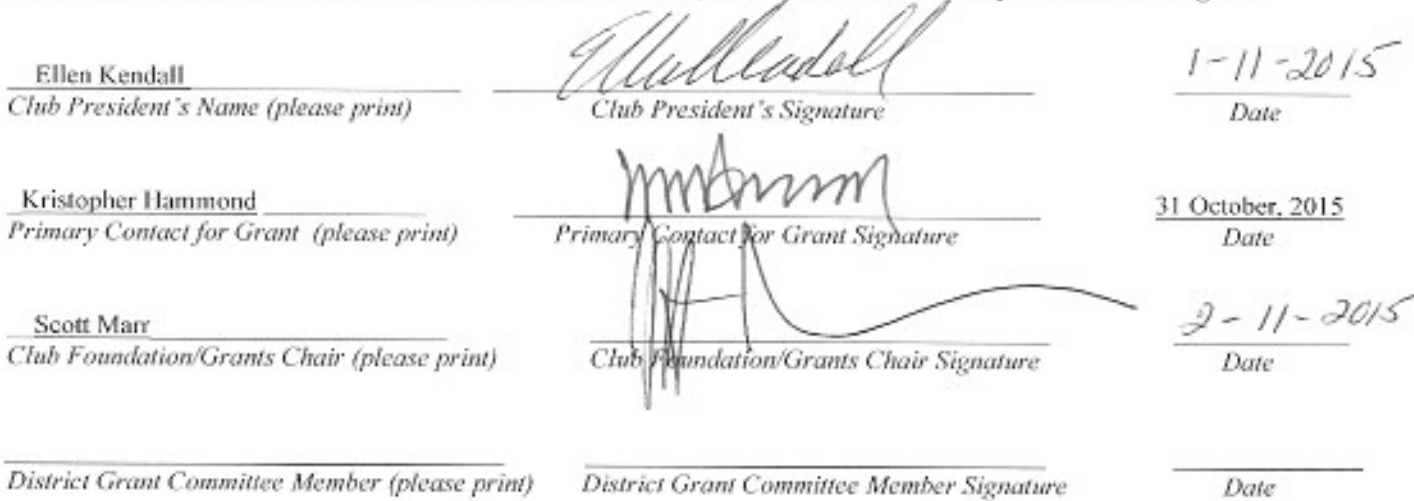 Ellen Kendall 1-11-2015
Club President's Name (please print) Club President's Signature Date
Kristopher Hammond 31 October, 2015
Primary Contact for Grant (please print) Primary Contact for Grant Signature Date
Scott Marr 2-11-2015
Club Foundation/Grants Chair (please print) Club Foundation/Grants Chair Signature Date
District Grant Committee Member (please print) District Grant Committee Member Signature Date